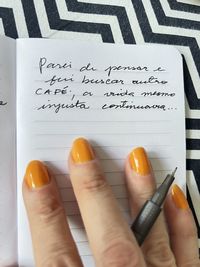 Parei de pensar e
fui buscar outro
CAFÉ, a vida mesmo
injusta continuava...